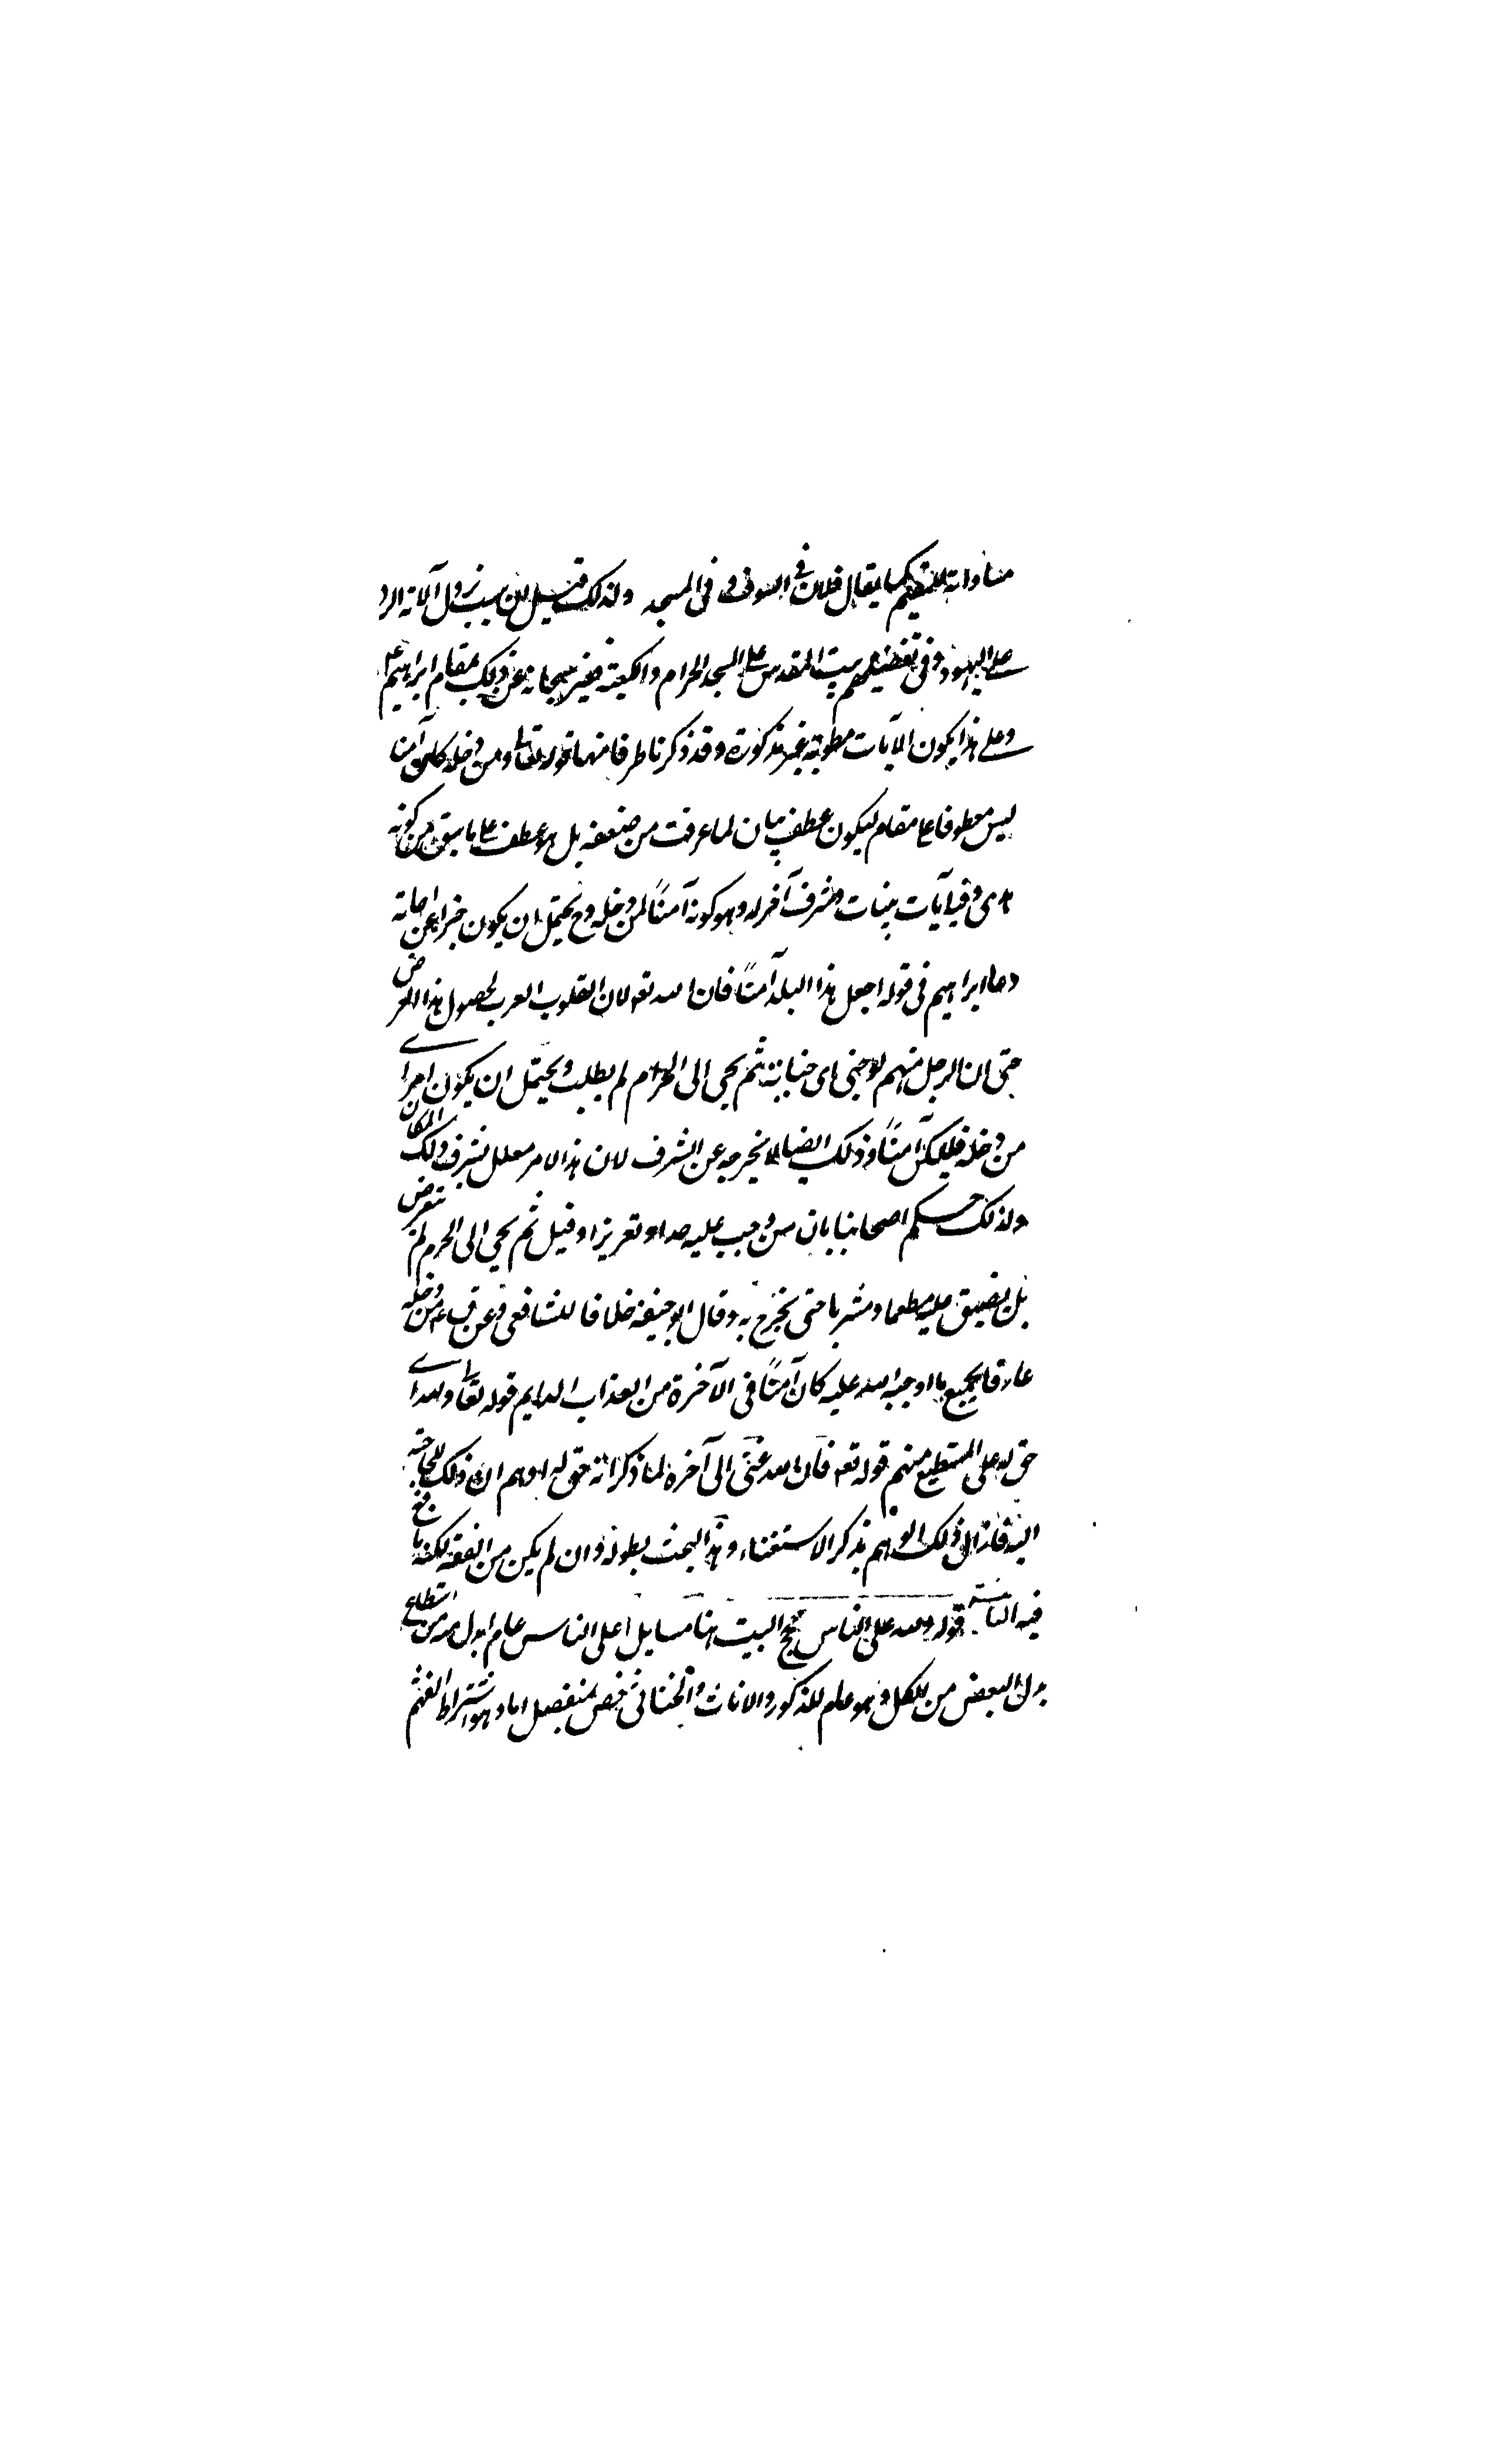 كما يقال فلان في السوق و في المسجد ولذلك قيل ان سبب نزول الآية الرد
على اليهود في تفضيلهم بيت المقدس على المسجد الحرام والكعبة فعبر سبحانه عن ذلك بمقام ابراهيم ع
وعلى هذا يكون الآيات مطوية غير مذكورة وقد ذكرنا طرفا منها قوله تعالى ومن دخله كان آمنا
ليس معطوفا على مقام ليكون عطف بيان لما عرفت من ضعفه بل هو عطف على ما سبق من كونه
هدى وفيه آيات بينات وشرف آخر له وهو كونه آمنًا لمن دخله وح يحتمل ان يكون خبرا عن اجابة
دعا ابراهيم في قوله اجعل هذا البلد آمنًا فان الله تعه لان القلوب العرب لحصول هذا الغرض
حتى ان الرجل منهم لو جنى اى جناية ثم يجي الى الحرم لم يطلب ويحتمل ان يكون امرا اى
من دخله فليكن آمنًا وذلك ايضا لا يخرجه عن الشرف لان هذا الامر معلل بشرف ذلك المكان
ولذلك حكم اصحابنا بان من وجب عليه حد او تعزير او قتل ثم يجي الى الحرم لم يتعرض
بل يضيق عليه مطعما ومشربا حتى يخرج به وقال ابو حنيفة خلافا للشافعي وعن ق ع من دخله
عارفا بجميع ما اوجبه الله عليه كان آمنًا في الآخرة من العذاب الدايم قوله تعالى ولله اى
حق له على المستطيع منهم قوله تعه فان الله غني الى آخره لما ذكر انه حق له اوهم ان ذلك للحاجة
اليه فازال ذلك الوهم بذكر الاستغناء وهذا البحث بطوله وان لم يكن من الفقه لكنه نافع
فيه الثانية قوله ولله على الناس حج البيت هنا مسايل ا على الناس عام ابدل منه من استطاع
بدل البعض من الكل وهو عام للذكور والاناث والخناثى خص بمنفصل اما وهو اشتراط الفهم